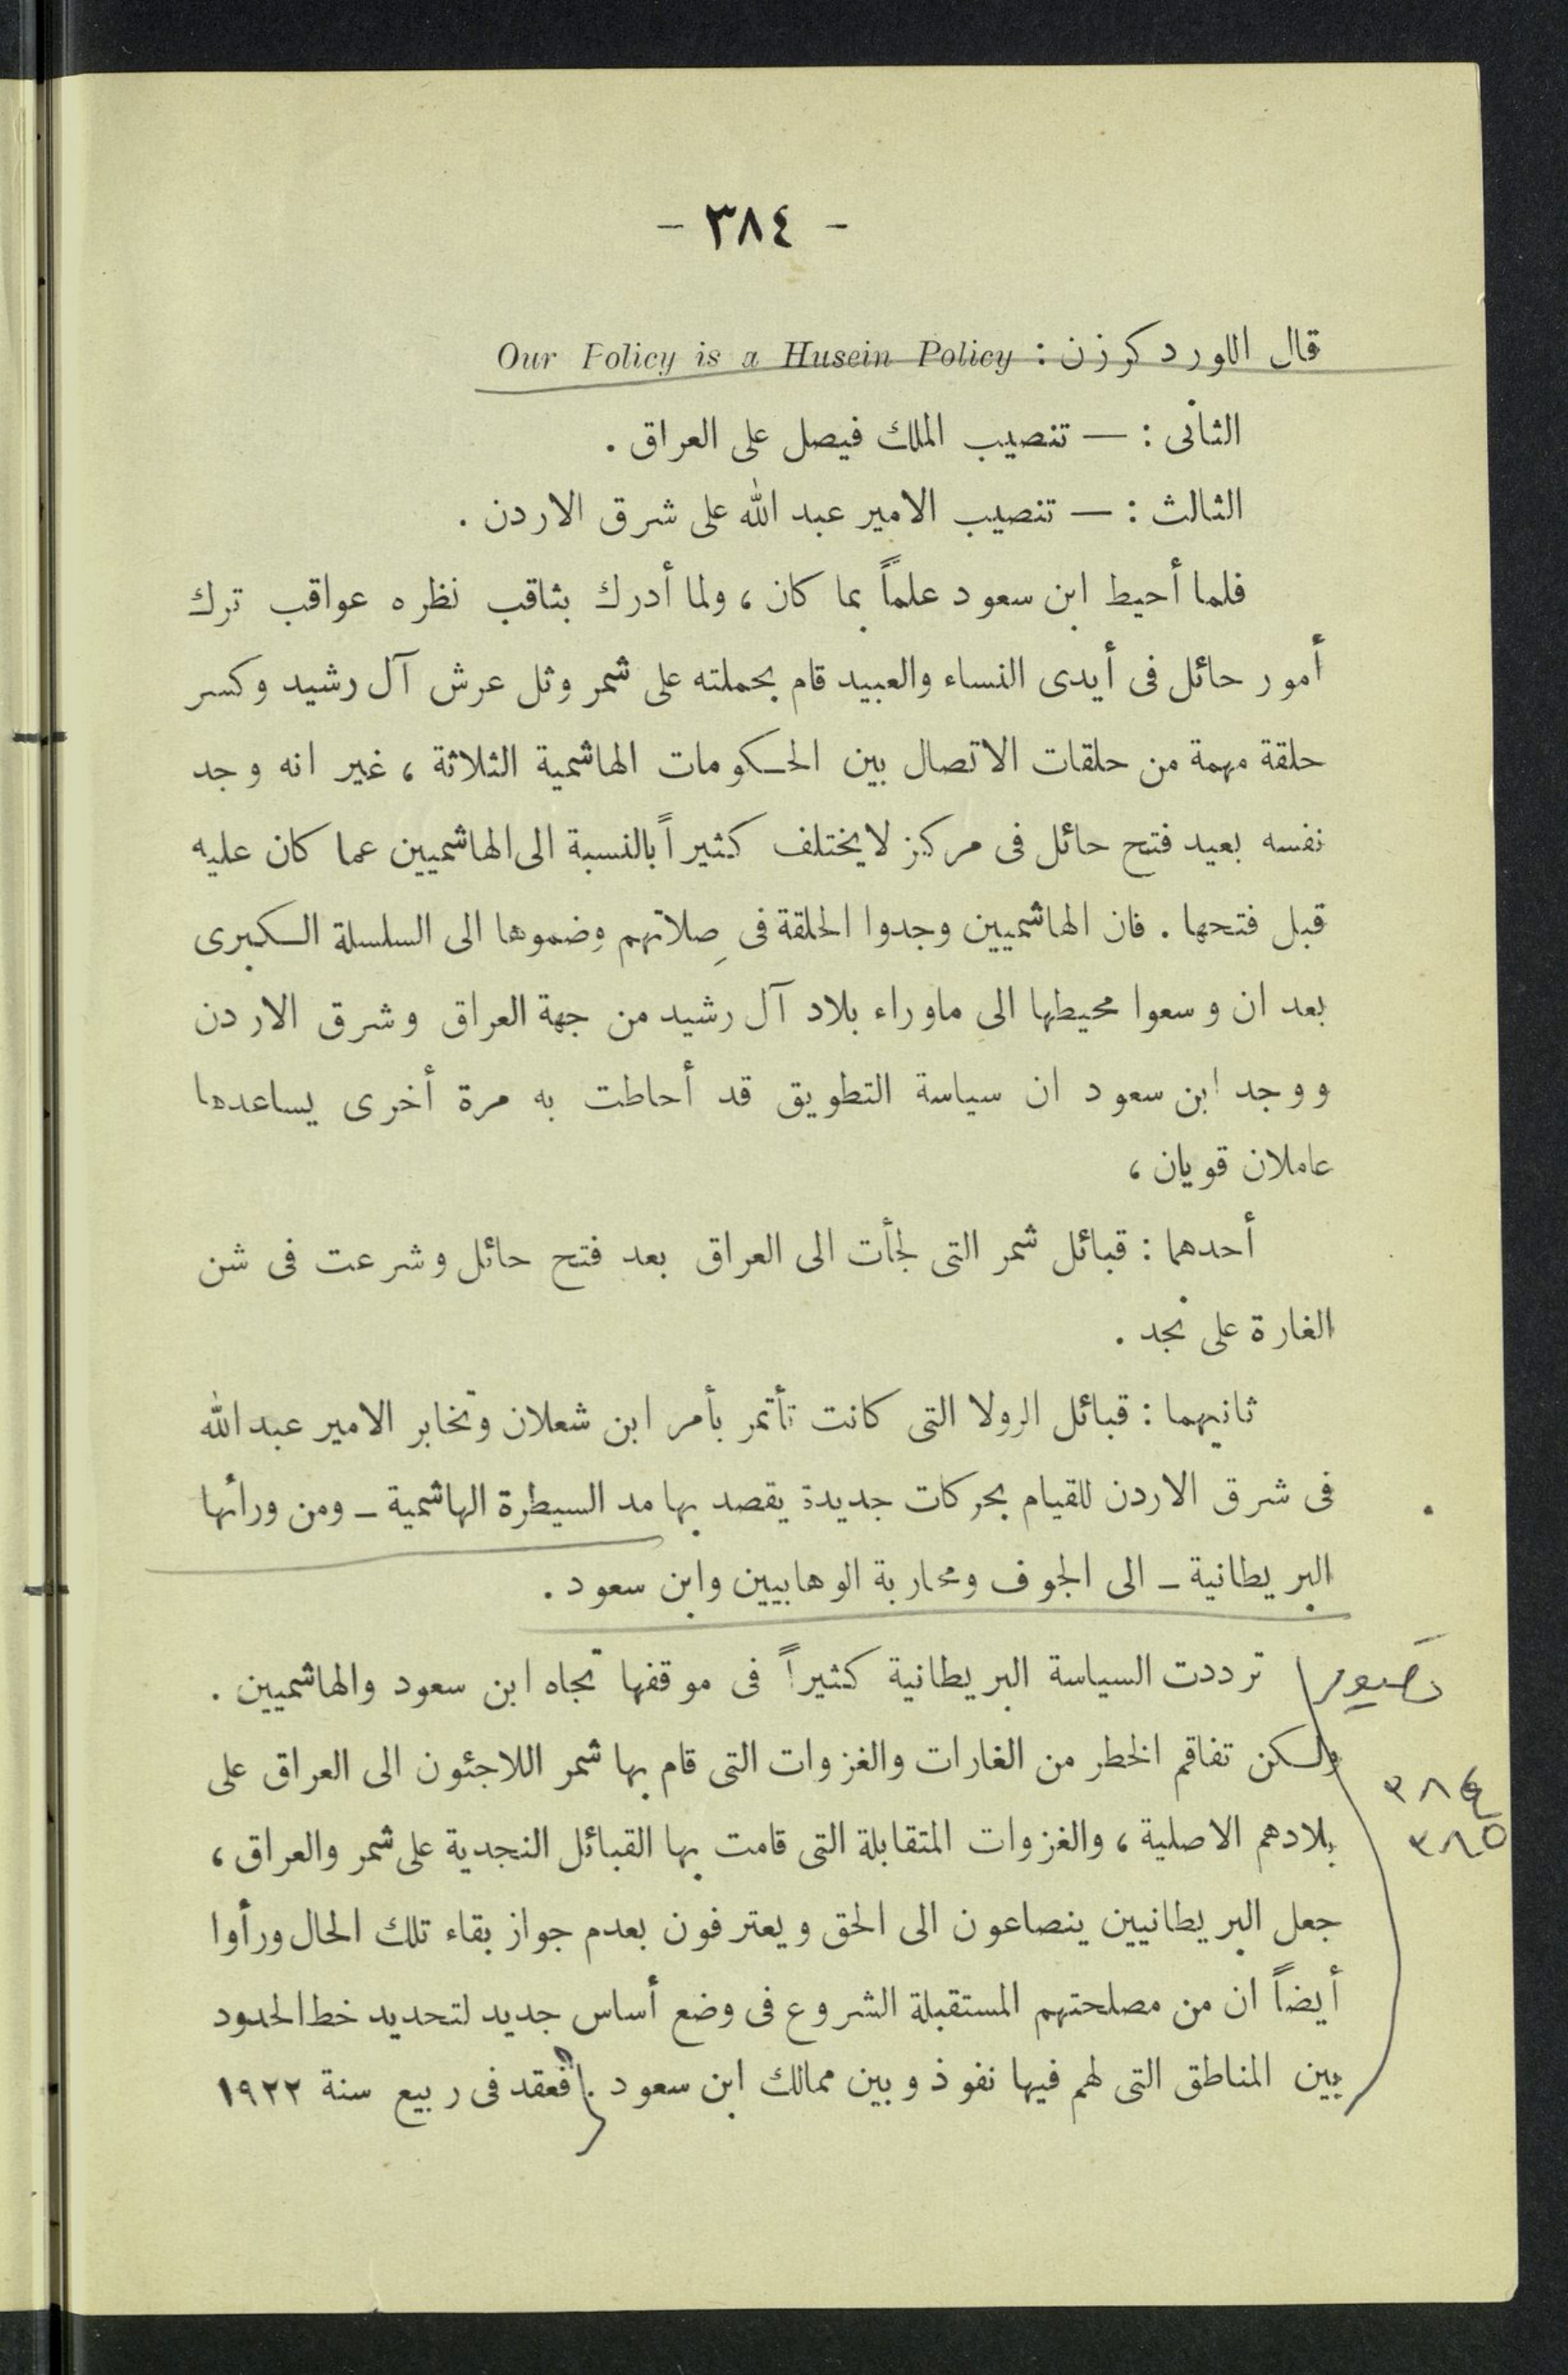 - ٣٨٤ -
قال اللورد كرزن : Our Folicy is a Husein Policy
الثانى : — تنصيب الملك فيصل على العراق .
الثالث : — تنصيب الامير عبد الله على شرق الاردن .
فلما أحيط ابن سعود علماً بما كان ، ولما أدرك بثاقب نظره عواقب ترك
أمور حائل فى أيدى النساء والعبيد قام بحملته على شمر وثل عرش آل رشيد وكسر
حلقة مهمة من حلقات الاتصال بين الحكومات الهاشمية الثلاثة ، غير انه وجد
نفسه بعيد فتح حائل فى مركز لا يختلف كثيراً بالنسبة الى الهاشميين عما كان عليه
قبل فتحها . فان الهاشميين وجدوا الحلقة فى صِلاتهم وضموها الى السلسلة الكبرى
بعد ان وسعوا محيطها الى ماوراء بلاد آل رشيد من جهة العراق وشرق الاردن
ووجد ابن سعود ان سياسة التطويق قد أحاطت به مرة أخرى يساعدها
عاملان قويان ،
أحدهما : قبائل شمر التى لجأت الى العراق بعد فتح حائل وشرعت فى شن
الغارة على نجد .
ثانيهما : قبائل الرولا التى كانت تأتمر بأمر ابن شعلان وتخابر الامير عبد الله
فى شرق الاردن للقيام بحركات جديدة يقصد بها مد السيطرة الهاشمية ـ ومن ورائها
البريطانية ـ الى الجوف ومحاربة الوهابيين وابن سعود .
ترددت السياسة البريطانية كثيراً فى موقفها تجاه ابن سعود والهاشميين .
ولكن تفاقم الخطر من الغارات والغزوات التى قام بها شمر اللاجئون الى العراق على
بلادهم الاصلية ، والغزوات المتقابلة التى قامت بها القبائل النجدية على شمر والعراق ،
جعل البريطانيين ينصاعون الى الحق ويعترفون بعدم جواز بقاء تلك الحال ورأوا
أيضاً ان من مصلحتهم المستقبلة الشروع فى وضع أساس جديد لتحديد خط الحدود
بين المناطق التى لهم فيها نفوذ وبين ممالك ابن سعود . فعقد فى ربيع سنة ١٩٢٢
٣٨٤
٣٨٥